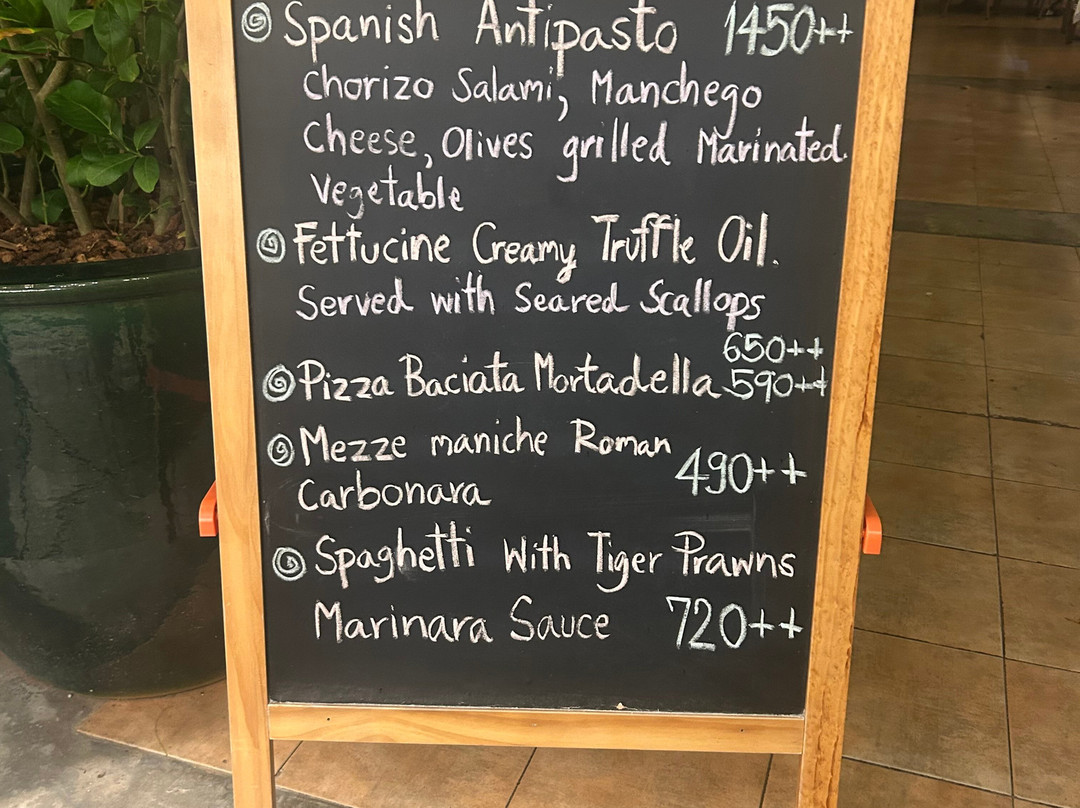 Spanish Antipasto 1450++
Chorizo Salami, Manchego
Cheese, Olives grilled Marinated.
Vegetable
Fettucine Creamy Truffle Oil.
Served with Seared Scallops
650++
Pizza Baciata Mortadella 590++
Mezze maniche Roman
Carbonara 490++
Spaghetti With Tiger Prawns
Marinara Sauce 720++